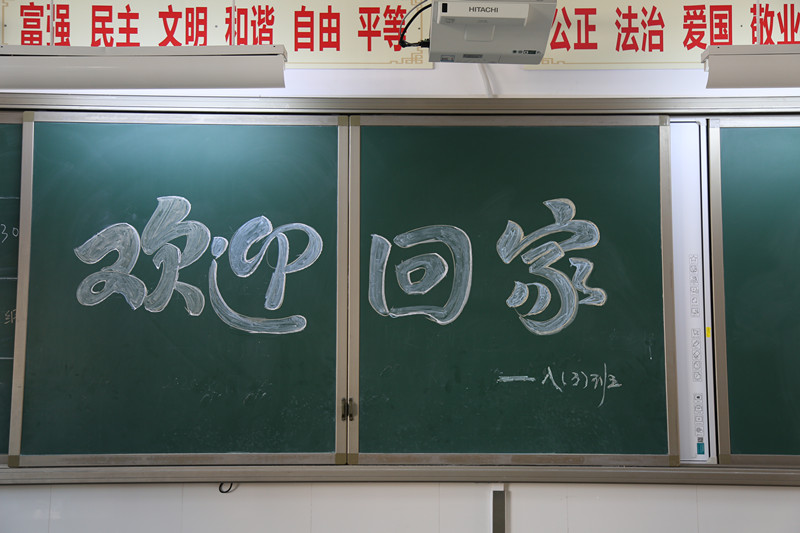 富强 民主 文明 和谐 自由 平等 公正 法治 爱国 敬业
HITACHI
欢迎回家
——八(3)班
30